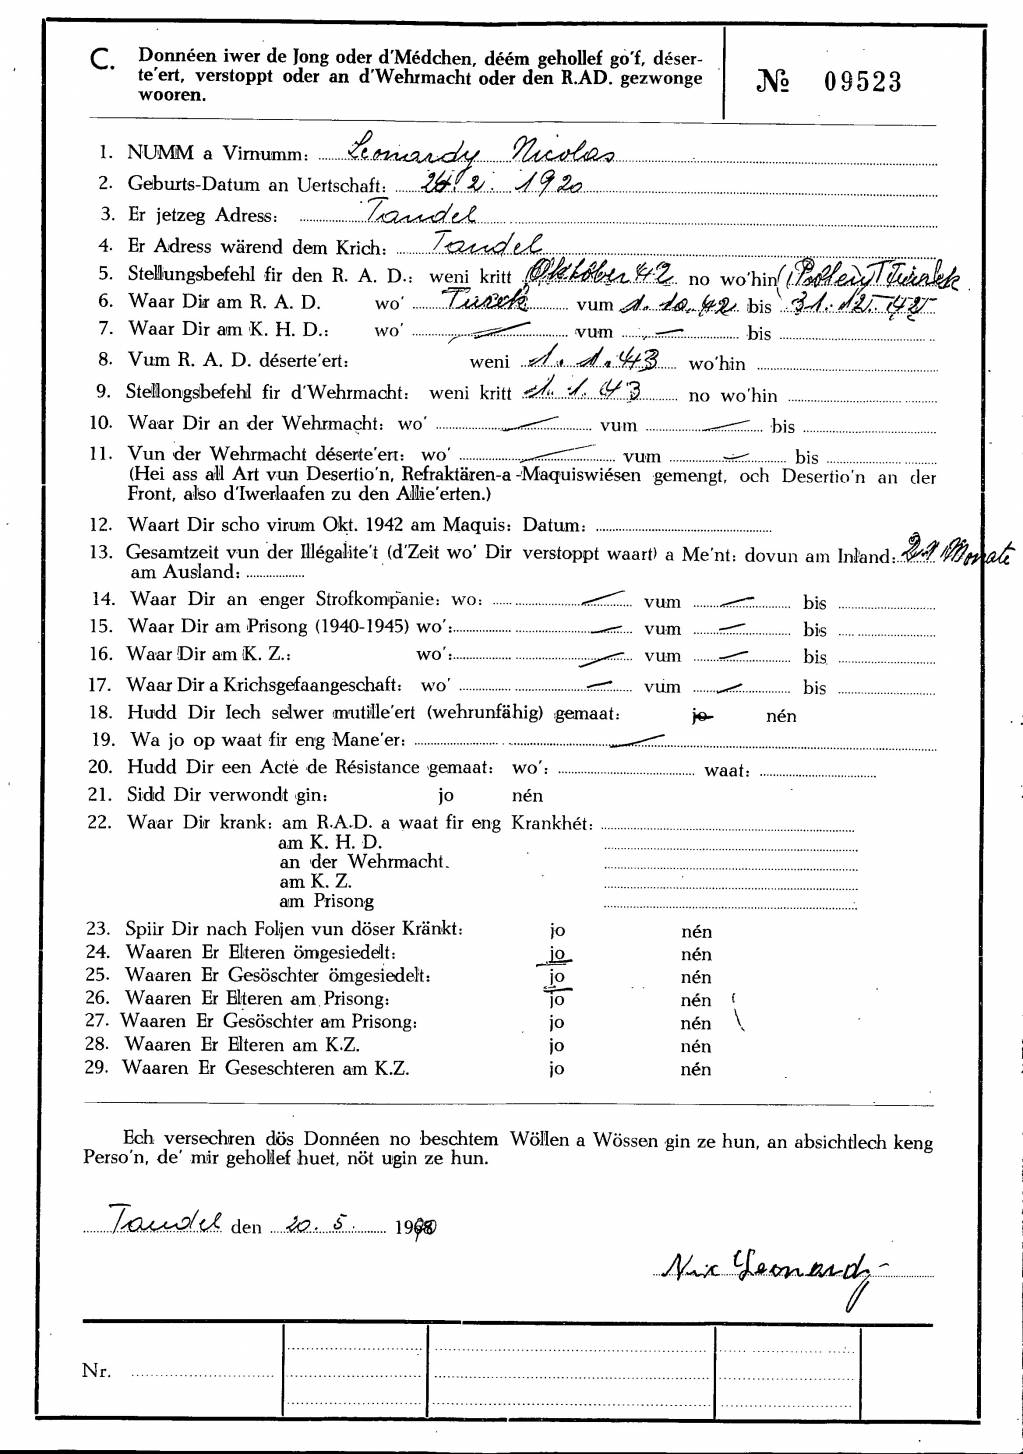 C. Donnéen iwer de Jong oder d'Médchen, déém gehollef go'f, déser-
te'ert, verstoppt oder an d'Wehrmacht oder den R.AD. gezwonge
wooren.
№ 09523
1. NUMM a Virnumm: Leonardy Nicolas
2. Geburts-Datum an Uertschaft: 2. 1920
3. Er jetzeg Adress: Tandel
4. Er Adress wärend dem Krich: Tandel
5. Stellungsbefehl fir den R. A. D.: weni kritt Oktober 42 no wo'hin (Polen) Turek
6. Waar Dir am R. A. D. wo' Turek vum 1. 10. 42 bis 31. 12. 42
7. Waar Dir am K. H. D.: wo' — vum — bis
8. Vum R. A. D. déserte'ert: weni 1. 1. 43 wo'hin
9. Stellongsbefehl fir d'Wehrmacht: weni kritt 1. 1. 43 no wo'hin
10. Waar Dir an der Wehrmacht: wo' — vum — bis
11. Vun der Wehrmacht déserte'ert: wo' — vum — bis
(Hei ass all Art vun Desertio'n, Refraktären-a-Maquiswiésen gemengt, och Desertio'n an der
Front, also d'Iwerlaafen zu den Allie'erten.)
12. Waart Dir scho virum Okt. 1942 am Maquis: Datum:
13. Gesamtzeit vun der Illégalite't (d'Zeit wo' Dir verstoppt waart) a Me'nt: dovun am Inland: 21 Monate
am Ausland:
14. Waar Dir an enger Strofkompanie: wo: — vum — bis
15. Waar Dir am Prisong (1940-1945) wo': — vum — bis
16. Waar Dir am K. Z.: wo': — vum — bis
17. Waar Dir a Krichsgefaangeschaft: wo' — vum — bis
18. Hudd Dir Iech selwer mutille'ert (wehrunfähig) gemaat: jo nén
19. Wa jo op waat fir eng Mane'er: —
20. Hudd Dir een Acte de Résistance gemaat: wo': waat:
21. Sidd Dir verwondt gin: jo nén
22. Waar Dir krank: am R.A.D. a waat fir eng Krankhét:
am K. H. D.
an der Wehrmacht.
am K. Z.
am Prisong
23. Spiir Dir nach Foljen vun döser Kränkt: jo nén
24. Waaren Er Elteren ömgesiedelt: jo nén
25. Waaren Er Gesöschter ömgesiedelt: jo nén
26. Waaren Er Elteren am Prisong: jo nén
27. Waaren Er Gesöschter am Prisong: jo nén
28. Waaren Er Elteren am K.Z. jo nén
29. Waaren Er Geseschteren am K.Z. jo nén
Ech versechren dös Donnéen no beschtem Wöllen a Wössen gin ze hun, an absichtlech keng
Perso'n, de' mir gehollef huet, nöt ugin ze hun.
Tandel den 20. 5. 19
Nic Leonardy
Nr.